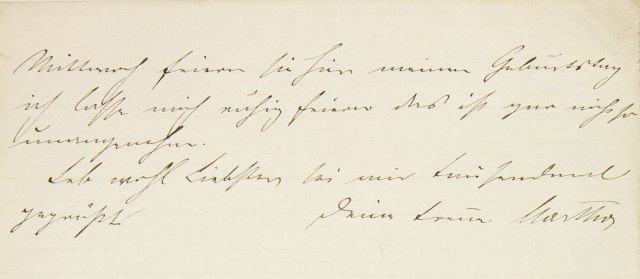 Mittwoch feiern sie hier meinen Geburtstag
ich lasse mich ruhig feiern das ist gar nicht so
unangenehm.
Leb wohl Liebster sei mir tausendmal
gegrüßt Deine treue Martha